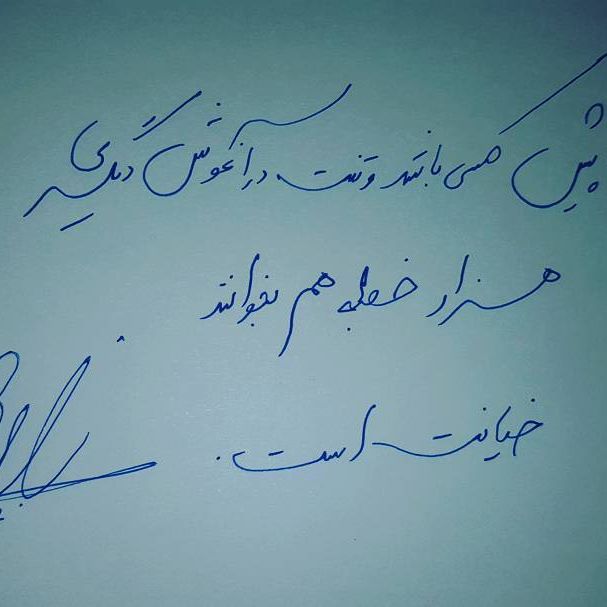 پیش کسی باشد و تنت در آغوش دیگری
هزار خطبه هم بخوانند
خیانت است.